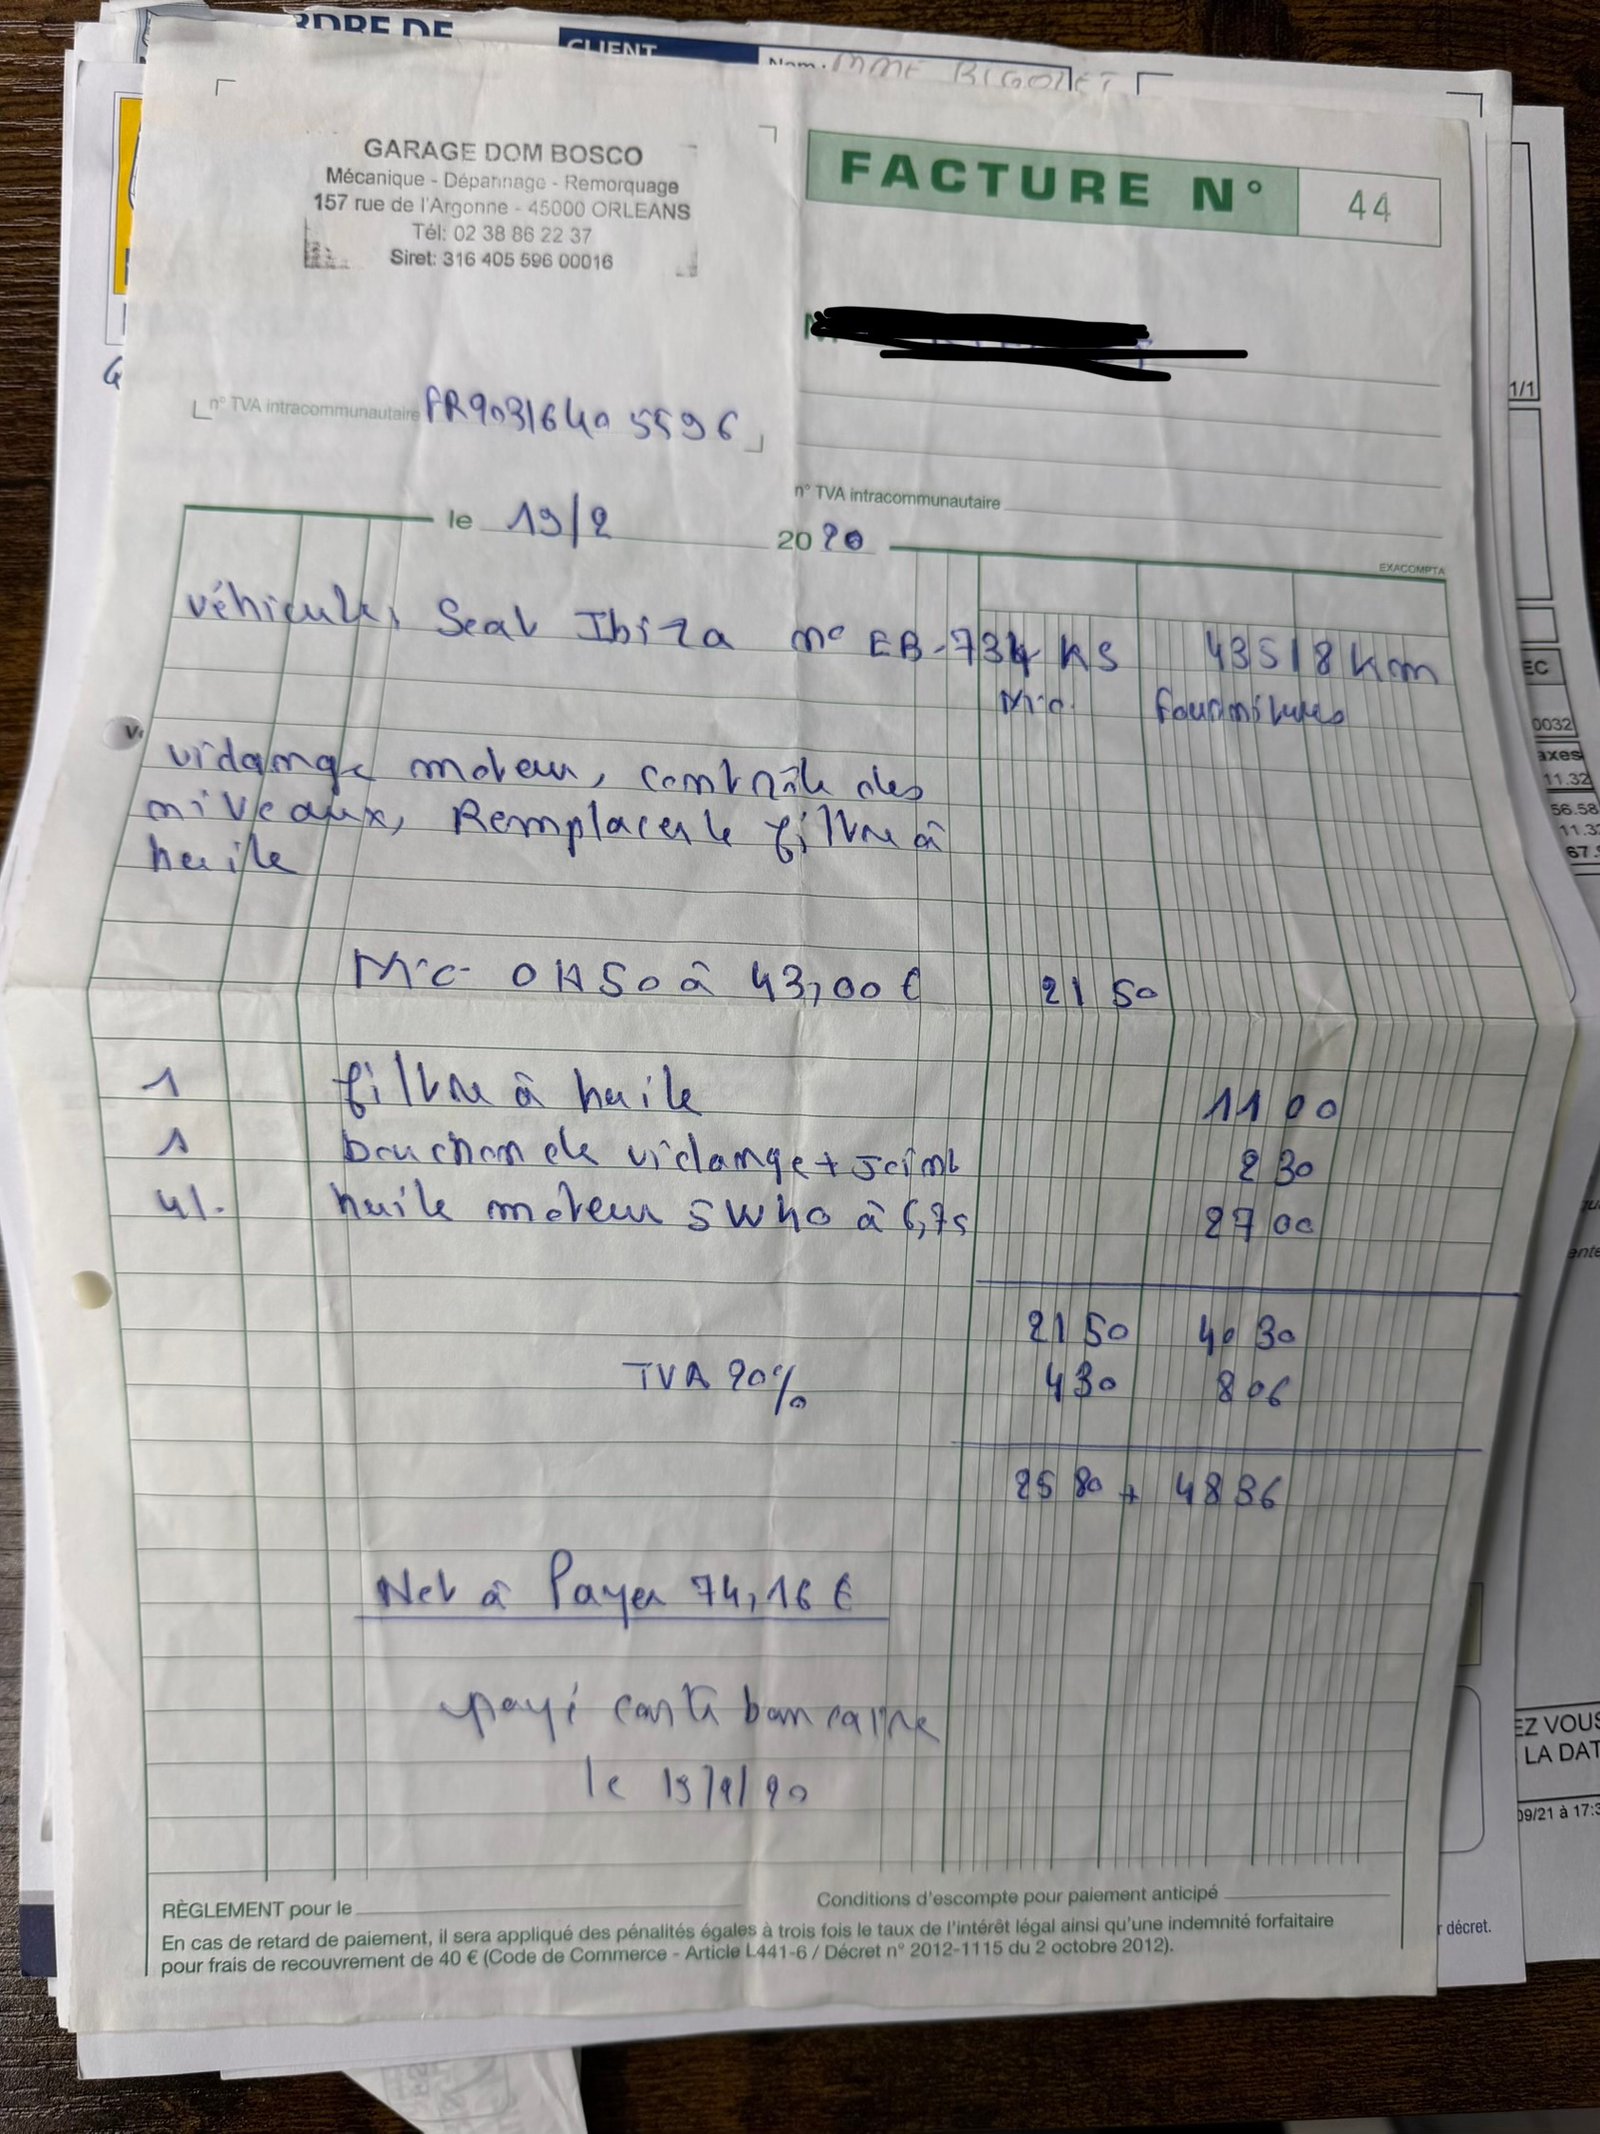 CLIENT
GARAGE DOM BOSCO
Mécanique - Dépannage - Remorquage
157 rue de l'Argonne - 45000 ORLEANS
Tél: 02 38 86 22 37
Siret: 316 405 596 00016
FACTURE N° 44
n° TVA intracommunautaire FR90316405596
n° TVA intracommunautaire
le 19/2 2020
EXACOMPTA
véhicule, Seat Ibiza n° EB-734 KS 43518 km
M.O. fournitures
vidange moteur, contrôle des
niveaux, Remplacer le filtre à
huile
M.O. 0H50 à 43,00 € 21 50
1 filtre à huile 11 00
1 bouchon de vidange + joint 2 30
4l. huile moteur 5W40 à 6,75 27 00
21 50 40 30
TVA 20% 4 30 8 06
25 80 + 48 36
Net à Payer 74,16 €
payé carte bancaire
le 19/2/20
RÈGLEMENT pour le
Conditions d'escompte pour paiement anticipé
En cas de retard de paiement, il sera appliqué des pénalités égales à trois fois le taux de l'intérêt légal ainsi qu'une indemnité forfaitaire
pour frais de recouvrement de 40 € (Code de Commerce - Article L441-6 / Décret n° 2012-1115 du 2 octobre 2012).
1/1
EC
0032
axes
11.32
56.58
EZ VOUS
LA DAT
09/21 à 17:3
décret.